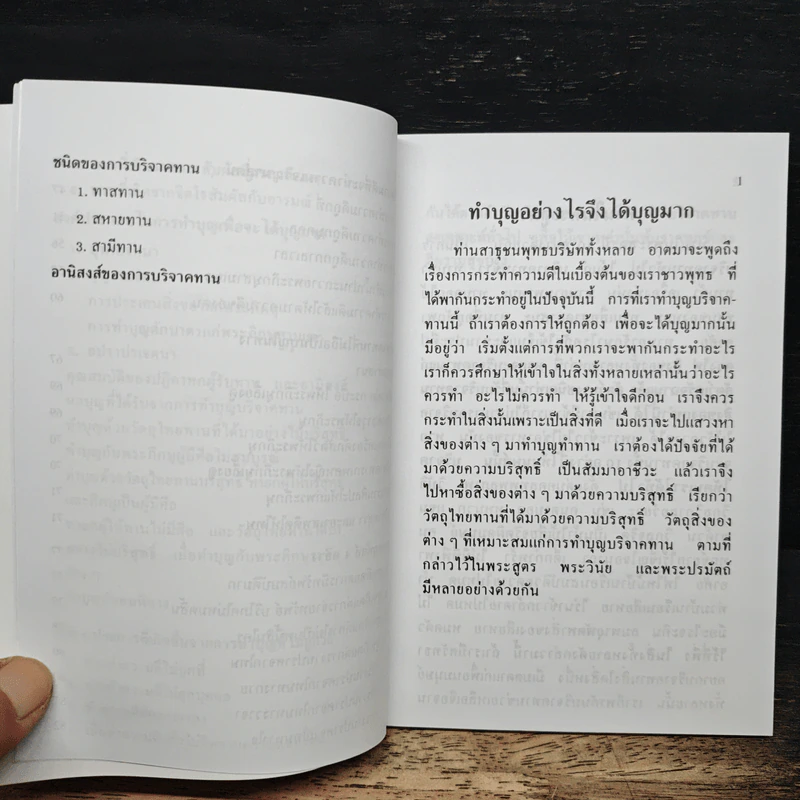 ชนิดของการบริจาคทาน
1. ทาสทาน
2. สหายทาน
3. สามีทาน
อานิสงส์ของการบริจาคทาน
1
ทำบุญอย่างไรจึงได้บุญมาก
ท่านสาธุชนพุทธบริษัททั้งหลาย อาตมาจะพูดถึง
เรื่องการกระทำความดีในเบื้องต้นของเราชาวพุทธ ที่
ได้พากันกระทำอยู่ในปัจจุบันนี้ การที่เราทำบุญบริจาค-
ทานนี้ ถ้าเราต้องการให้ถูกต้อง เพื่อจะได้บุญมากนั้น
มีอยู่ว่า เริ่มตั้งแต่การที่พวกเราจะพากันกระทำอะไร
เราก็ควรศึกษาให้เข้าใจในสิ่งทั้งหลายเหล่านั้นว่าอะไร
ควรทำ อะไรไม่ควรทำ ให้รู้เข้าใจดีก่อน เราจึงควร
กระทำในสิ่งนั้นเพราะเป็นสิ่งที่ดี เมื่อเราจะไปแสวงหา
สิ่งของต่าง ๆ มาทำบุญทำทาน เราต้องได้ปัจจัยที่ได้
มาด้วยความบริสุทธิ์ เป็นสัมมาอาชีวะ แล้วเราจึง
ไปหาซื้อสิ่งของต่าง ๆ มาด้วยความบริสุทธิ์ เรียกว่า
วัตถุไทยทานที่ได้มาด้วยความบริสุทธิ์ วัตถุสิ่งของ
ต่าง ๆ ที่เหมาะสมแก่การทำบุญบริจาคทาน ตามที่
กล่าวไว้ในพระสูตร พระวินัย และพระปรมัตถ์
มีหลายอย่างด้วยกัน